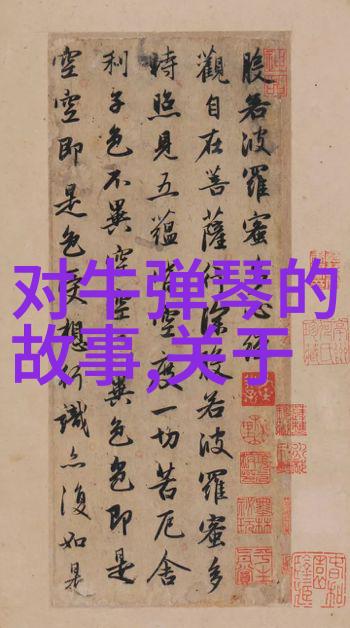 对牛弹琴的
故事,关于
般若波羅蜜多心經
觀自在菩薩行深般若波羅蜜多
時照見五蘊皆空度一切苦厄舍
利子色不異空空不異色色即是
空空即是色受想行識亦復如是